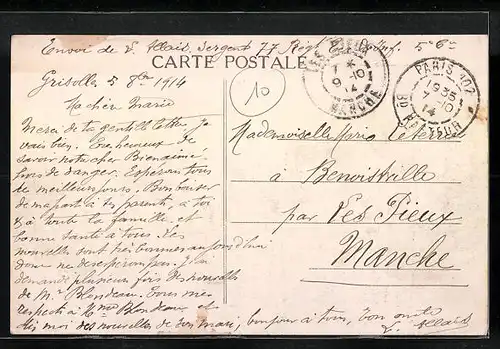 Envoi de V. Allais, Sergent 77 Rég^t 5^e C^ie
CARTE POSTALE
Grisolles 5 8bre 1914
Ma chère Marie
Merci de ta gentille lettre, je
vais bien. Très heureux de
savoir notre cher Bienaimé
hors de danger. Espérons tous
de meilleurs jours. Bien
de ma part à tes parents, à toi
& à toute la famille, et
bonne santé à tous. Les
nouvelles sont très bonnes aujourd'hui
donc ne désespérons pas. J'ai
demandé plusieurs fois des nouvelles
de M^r Blondeau. Tous mes
respects à M^me Blondeau et
dis moi des nouvelles de son mari, bonjour à tous, ton oncle
V. Allais
10
LES PIEUX
* 9 -10 14
MANCHE
PARIS 107
7 -10 14
Mademoiselle Marie Leterrier
à Benoistville
par Les Pieux
Manche